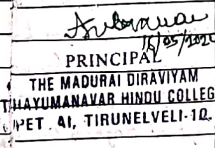 16/05/2024
PRINCIPAL
THE MADURAI DIRAVIYAM
THAYUMANAVAR HINDU COLLEG
PET AI, TIRUNELVELI-10.